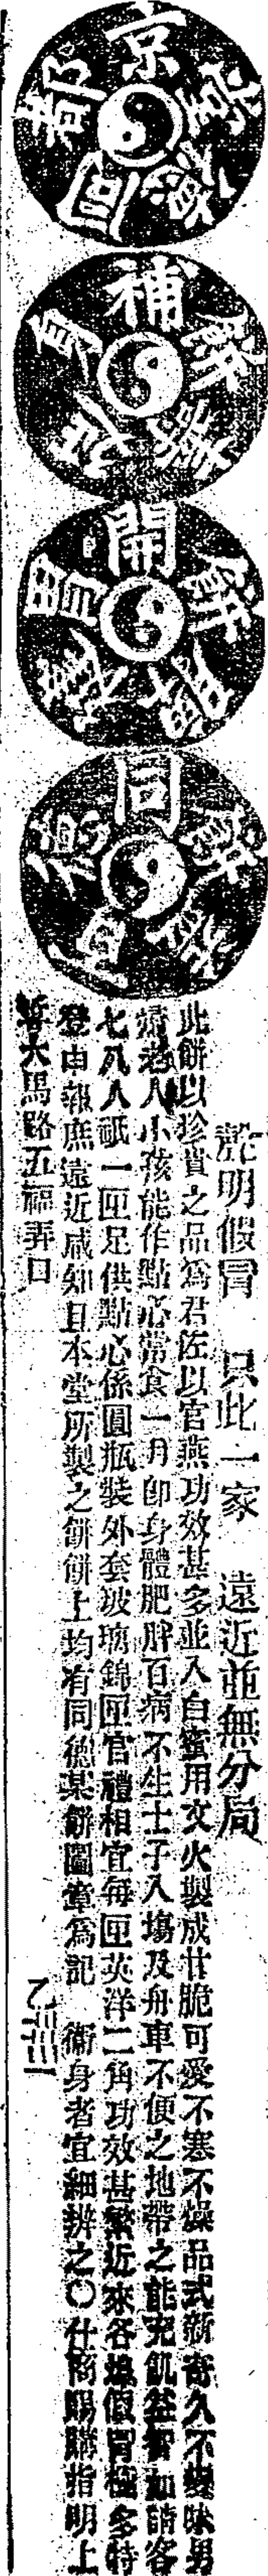 京都同德堂
開胃健脾餅
聲明假冒 只此一家 遠近並無分局
此餅以珍貴之品爲君佐以官燕功效甚多並入白蜜用文火製成甘脆可愛不寒不燥品式新奇久不變味男
婦老人小孩能作點心常食一月卽身體肥胖百病不生士子入塲及舟車不便之地帶之能充飢益智如請客
七八人祗一匣足供點心係圓瓶裝外套玻璃錦匣官禮相宜每匣英洋二角功效甚繁近來各埠假冒極多特
登申報庶遠近咸知且本堂所製之餅餅上均有同德某餅圖章爲記 衞身者宜細辨之〇仕商賜購指明上
大馬路五福弄口